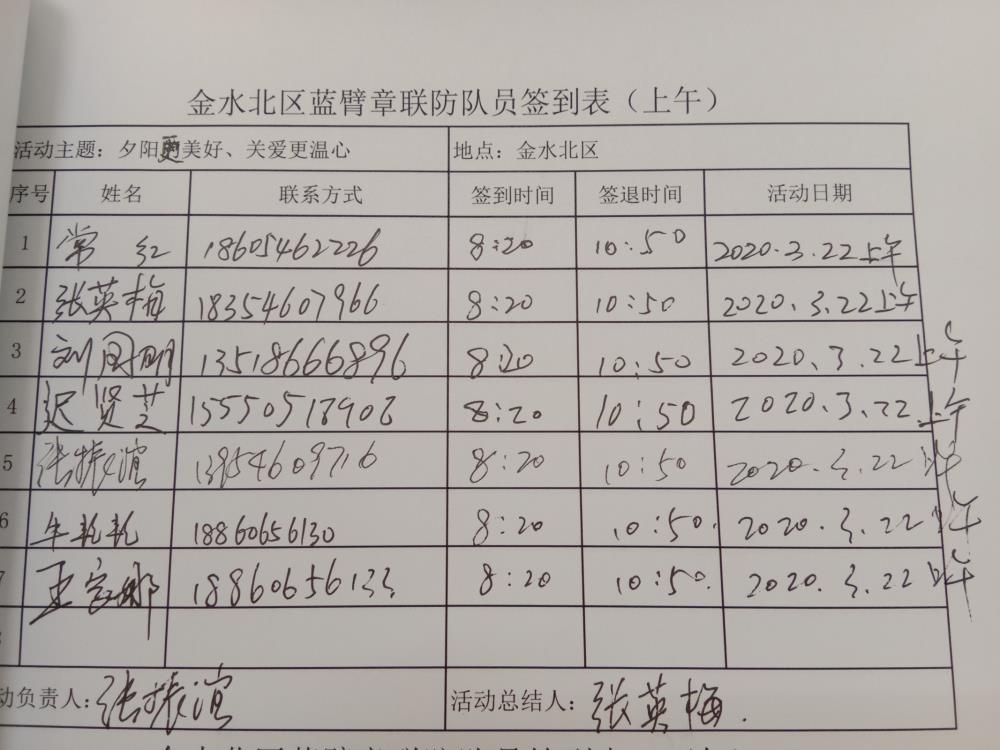 金水北区蓝臂章联防队员签到表（上午）
活动主题：夕阳更美好、关爱更温心 地点：金水北区
序号 姓名 联系方式 签到时间 签退时间 活动日期
1 常红 18605462226 8:20 10:50 2020.3.22上午
2 张英梅 18354607966 8:20 10:50 2020.3.22上午
3 刘国明 13518666896 8:20 10:50 2020.3.22上午
4 迟贤芝 8:20 10:50 2020.3.22上午
5 张振谊 13954609716 8:20 10:50 2020.3.22上午
6 牛乾乾 18860656130 8:20 10:50. 2020.3.22上午
7 王家娜 18860656133 8:20 10:50. 2020.3.22上午
动负责人：张振谊 活动总结人：张英梅.